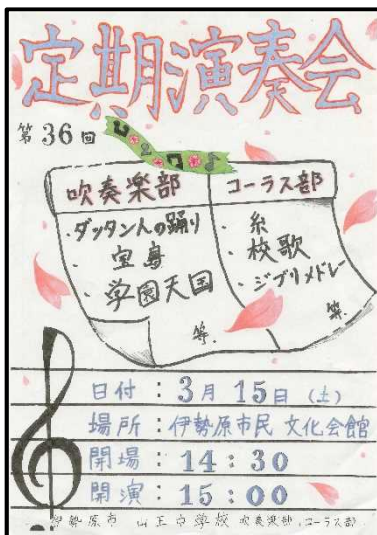 定期演奏会
第36回
吹奏楽部
・ダッタン人の踊り
・宝島
・学園天国
等.
コーラス部
・糸
・校歌
・ジブリメドレー
等.
日付：3月15日（土）
場所：伊勢原市民文化会館
開場：14：30
開演：15：00
伊勢原市 山王中学校 吹奏楽部、コーラス部